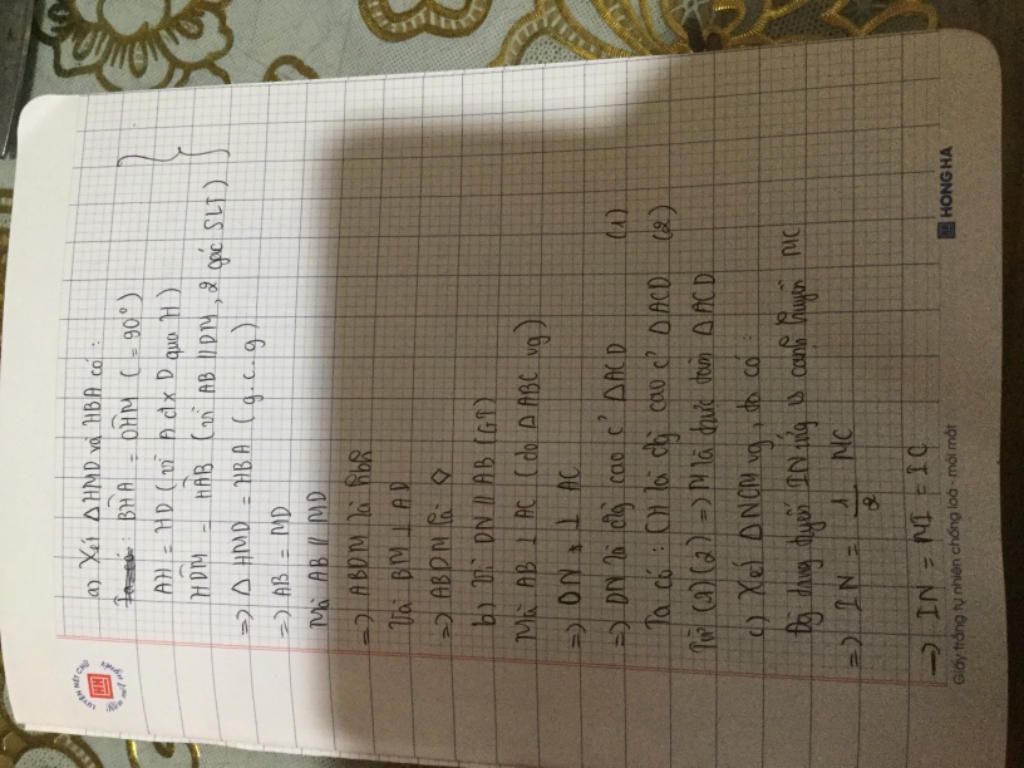 LUYỆN NÉT CHỮ
HH
a) Xét ΔHMD và HBA có :
BHA = DHM ( = 90°)
AH = HD ( vì A đx D qua H )
HDM = HAB ( vì AB // DM , 2 góc SLT )
=> Δ HMD = HBA ( g . c . g )
=> AB = MD
Mà AB // MD
=> ABDM là hbh
Mà BM ⊥ AD
=> ABDM là ◇
b) Vì DN // AB (GT)
Mà AB ⊥ AC ( do Δ ABC vg )
=> DN ⊥ AC
=> DN là đg cao c' ΔACD (1)
Ta có : CH là đg cao c' ΔACD (2)
Từ (1)(2) => M là trực tâm ΔACD
c) Xét ΔNCM vg , ta có :
Độ dài tuyến IN ứng vs cạnh huyền MC
=> IN = 1/2 MC
=> IN = MI = IC
Giấy trắng tự nhiên chống loá - mỏi mắt
HONG HA